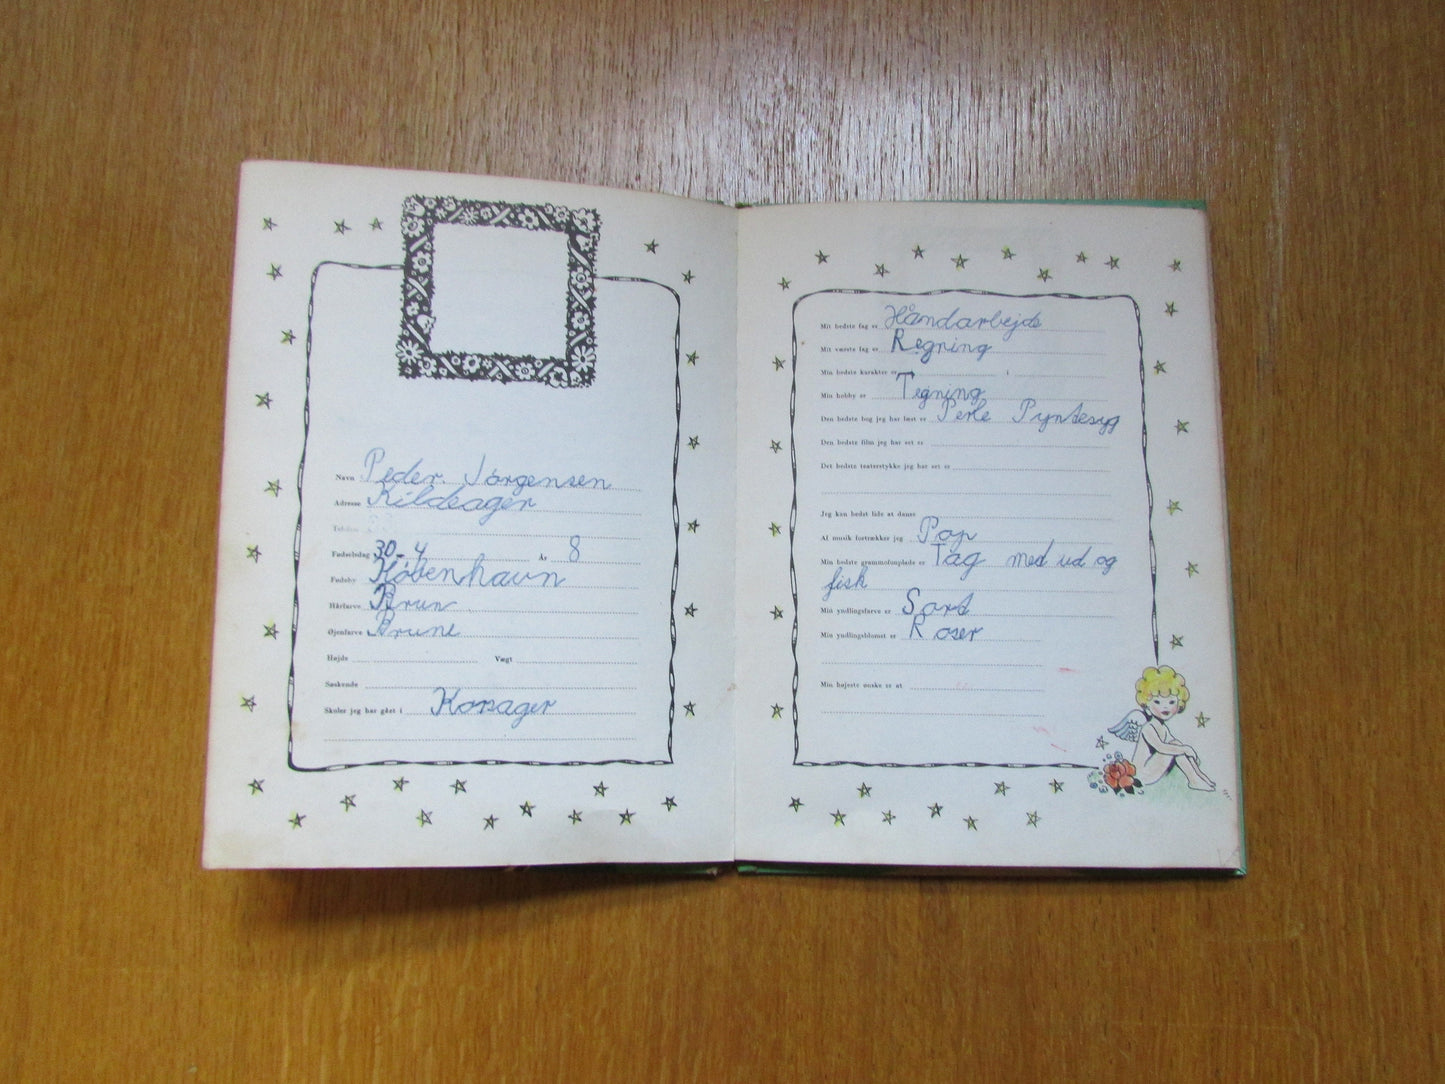 Navn Peder Jørgensen
Adresse Kildeager
Telefon
Fødselsdag 30-4 År 8
Fødeby København
Hårfarve Brun
Øjenfarve Brune
Højde Vægt
Søskende
Skoler jeg har gået i Korsager
Mit bedste fag er Håndarbejde
Mit værste fag er Regning
Min bedste karakter er i
Min hobby er Tegning
Den bedste bog jeg har læst er Perle Pyntesyg
Den bedste film jeg har set er
Det bedste teaterstykke jeg har set er
Jeg kan bedst lide at danse
Af musik foretrækker jeg Pop
Min bedste grammofonplade er Tag med ud og
fisk
Min yndlingsfarve er Sort
Min yndlingsblomst er Roser
Min højeste ønske er at